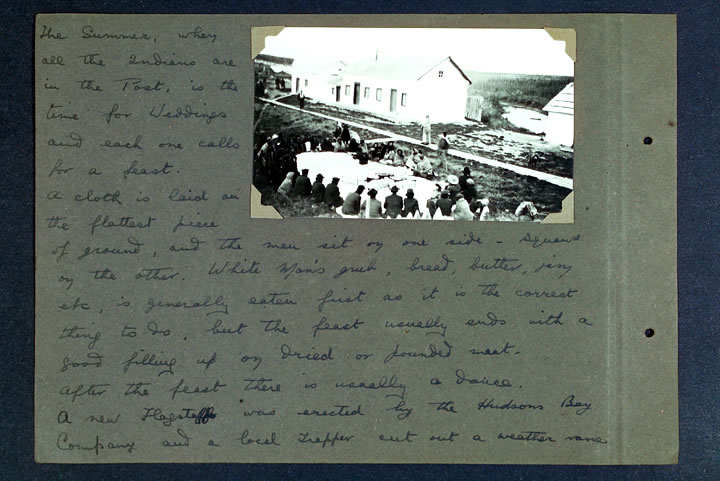 The Summer, when
all the Indians are
in the Post, is the
time for Weddings
and each one calls
for a feast.
A cloth is laid on
the flattest piece
of ground, and the men sit on one side - Squaws
on the other. White Man's grub, bread, butter, jam
etc, is generally eaten first as it is the correct
thing to do, but the feast usually ends with a
good filling up on dried or pounded meat.
After the feast there is usually a dance.
A new Flagstaff was erected by the Hudsons Bay
Company and a local Trapper cut out a weather vane